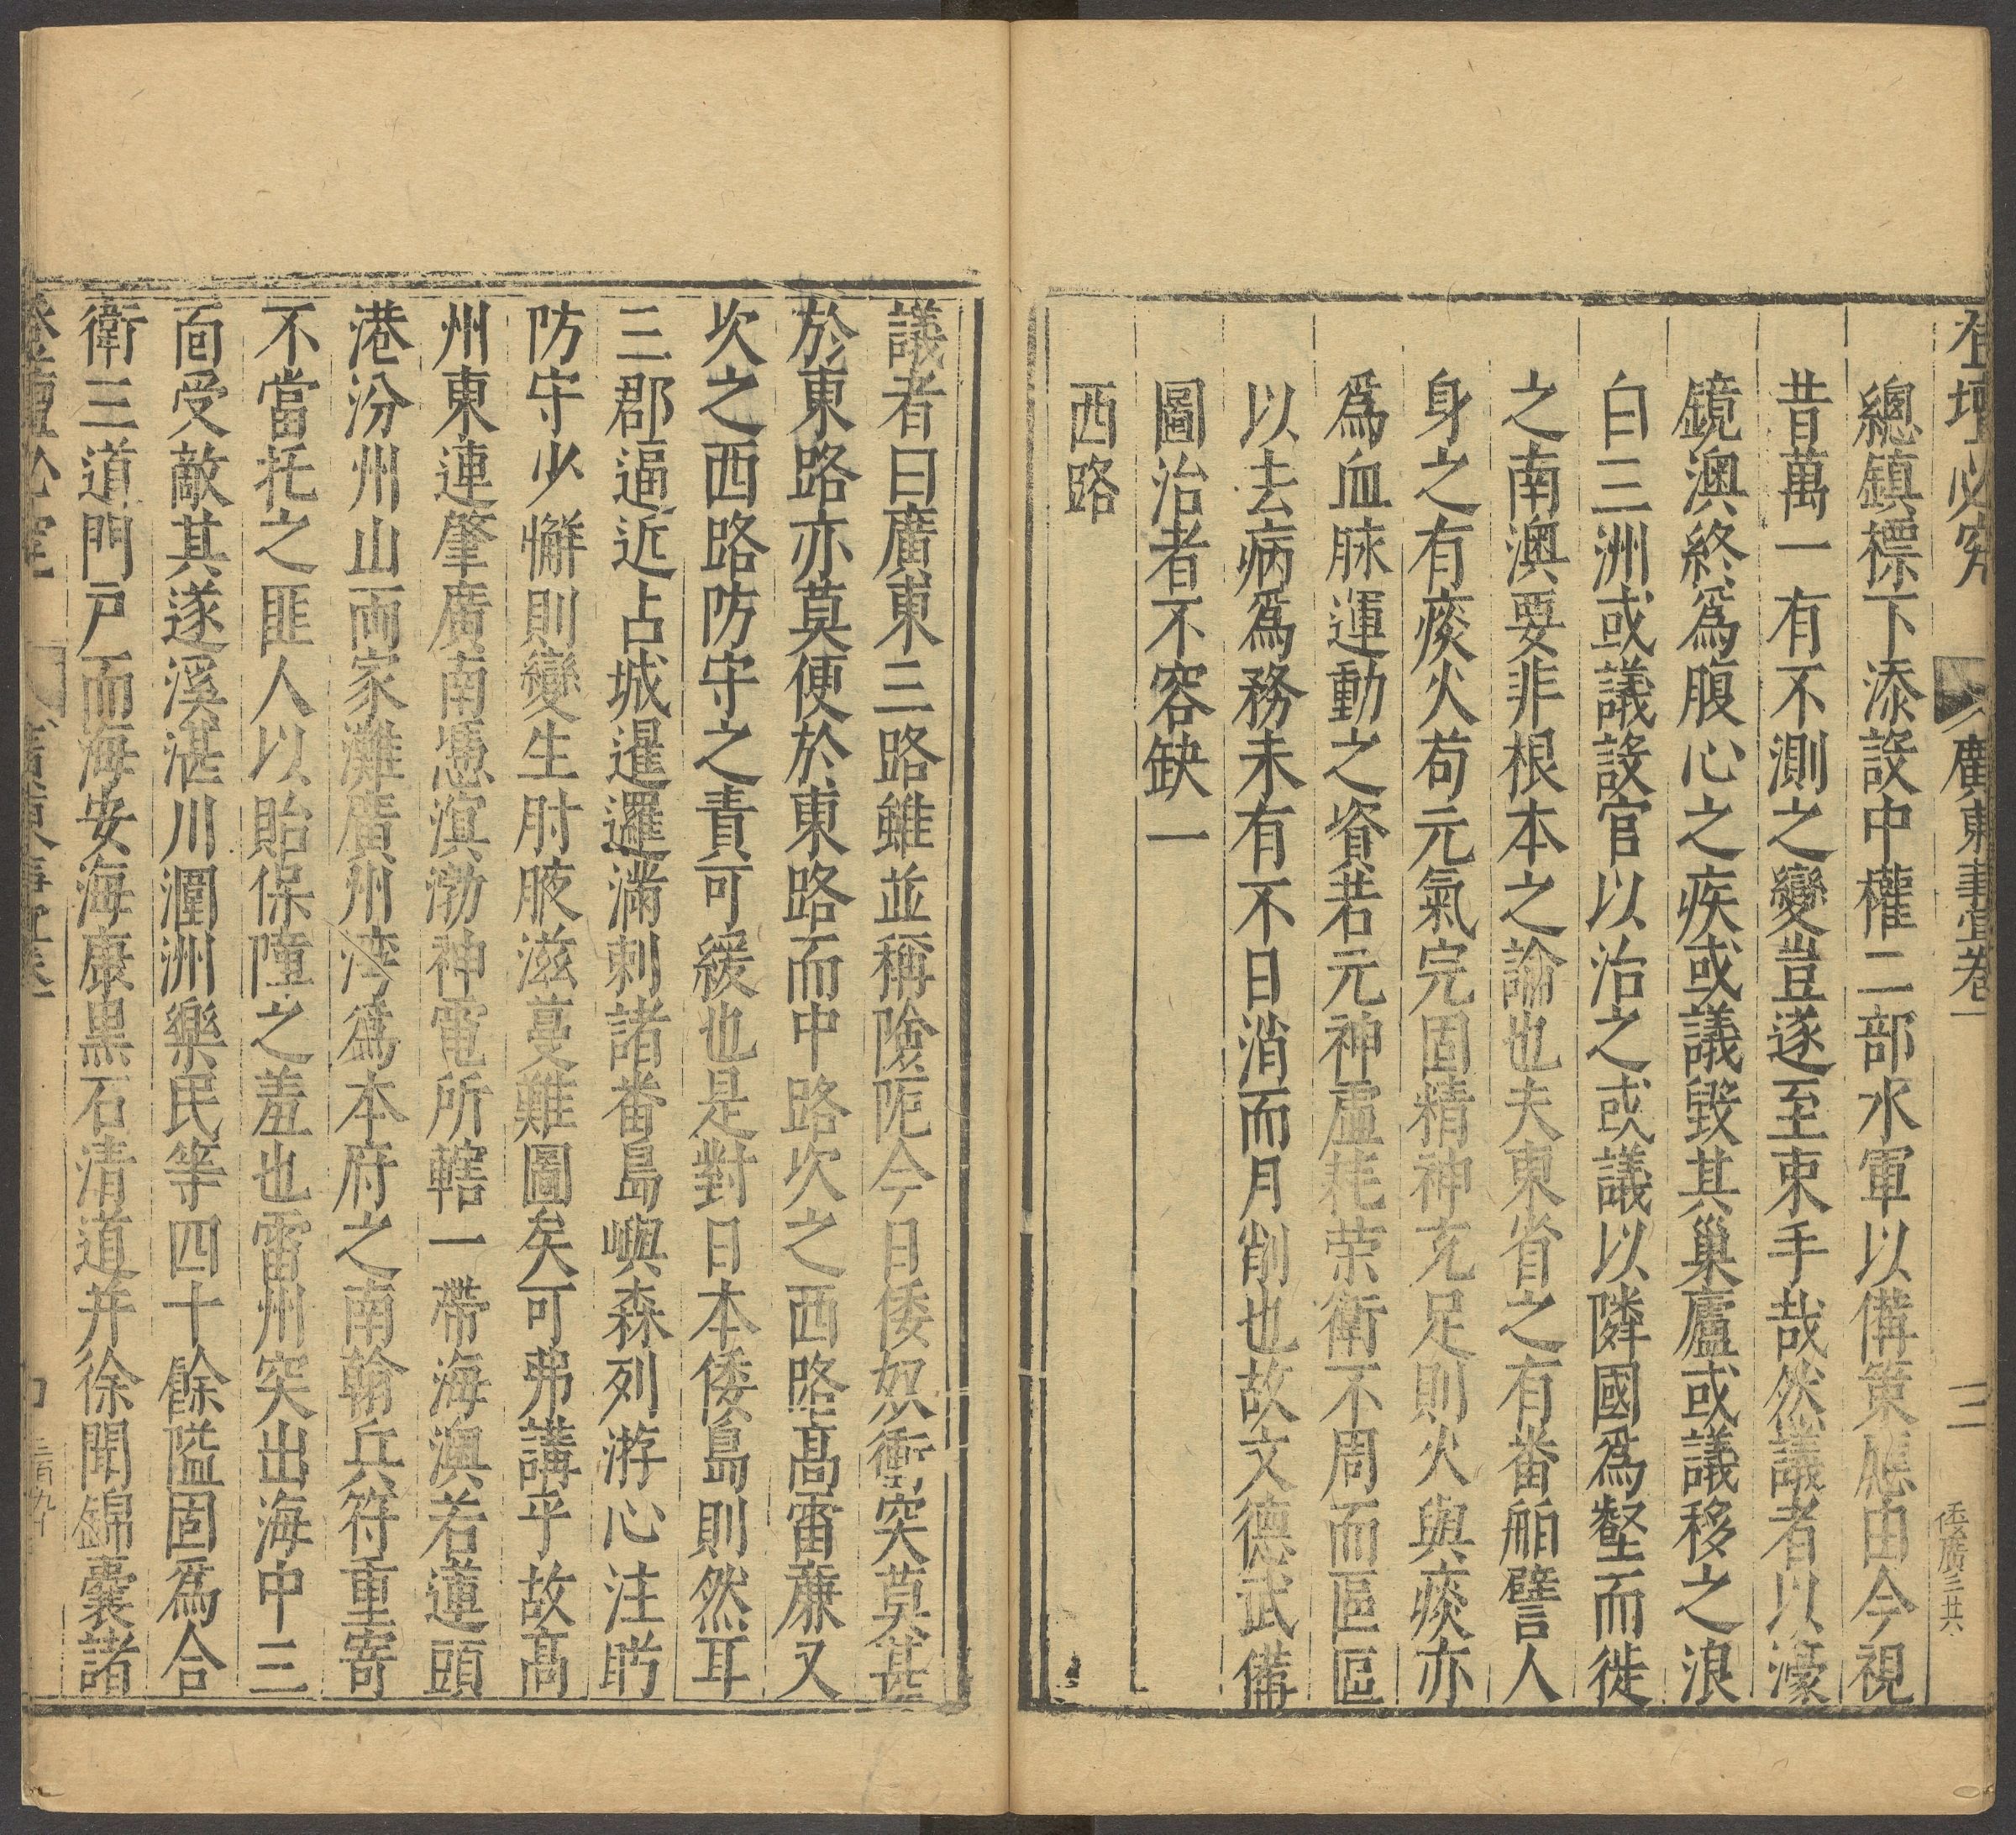 登壇必究 廣東事宜卷一 三
總鎮標下添設中權二部水軍以備策應由今視
昔萬一有不測之變豈遂至束手哉然議者以濠
鏡澳終爲腹心之疾或議毀其巢廬或議移之浪
白三洲或議設官以治之或議以隣國爲壑而徙
之南澳要非根本之論也夫東省之有番舶譬人
身之有痰火苟元氣完固精神充足則火與痰亦
爲血脉運動之資若元神虛耗荣衛不周而區區
以去病爲務未有不日消而月削也故文德武備
圖治者不容缺一
西路
議者曰廣東三路雖並稱險阨今日倭奴衝突莫甚
於東路亦莫便於東路而中路次之西路高雷廉又
次之西路防守之責可緩也是對日本倭島則然耳
三郡逼近占城暹邏滿剌諸番島嶼森列游心注盻
防守少懈則變生肘腋滋蔓難圖矣可弗講乎故高
州東連肇廣南憑溟渤神電所轄一帶海澳若蓮頭
港汾州山両家灘廣州湾爲本府之南翰兵符重寄
不當托之匪人以貽保障之羞也雷州突出海中三
面受敵其遂溪湛川潿洲樂民等四十餘隘固爲合
衛三道門戶而海安海康黒石清道并徐聞錦囊諸